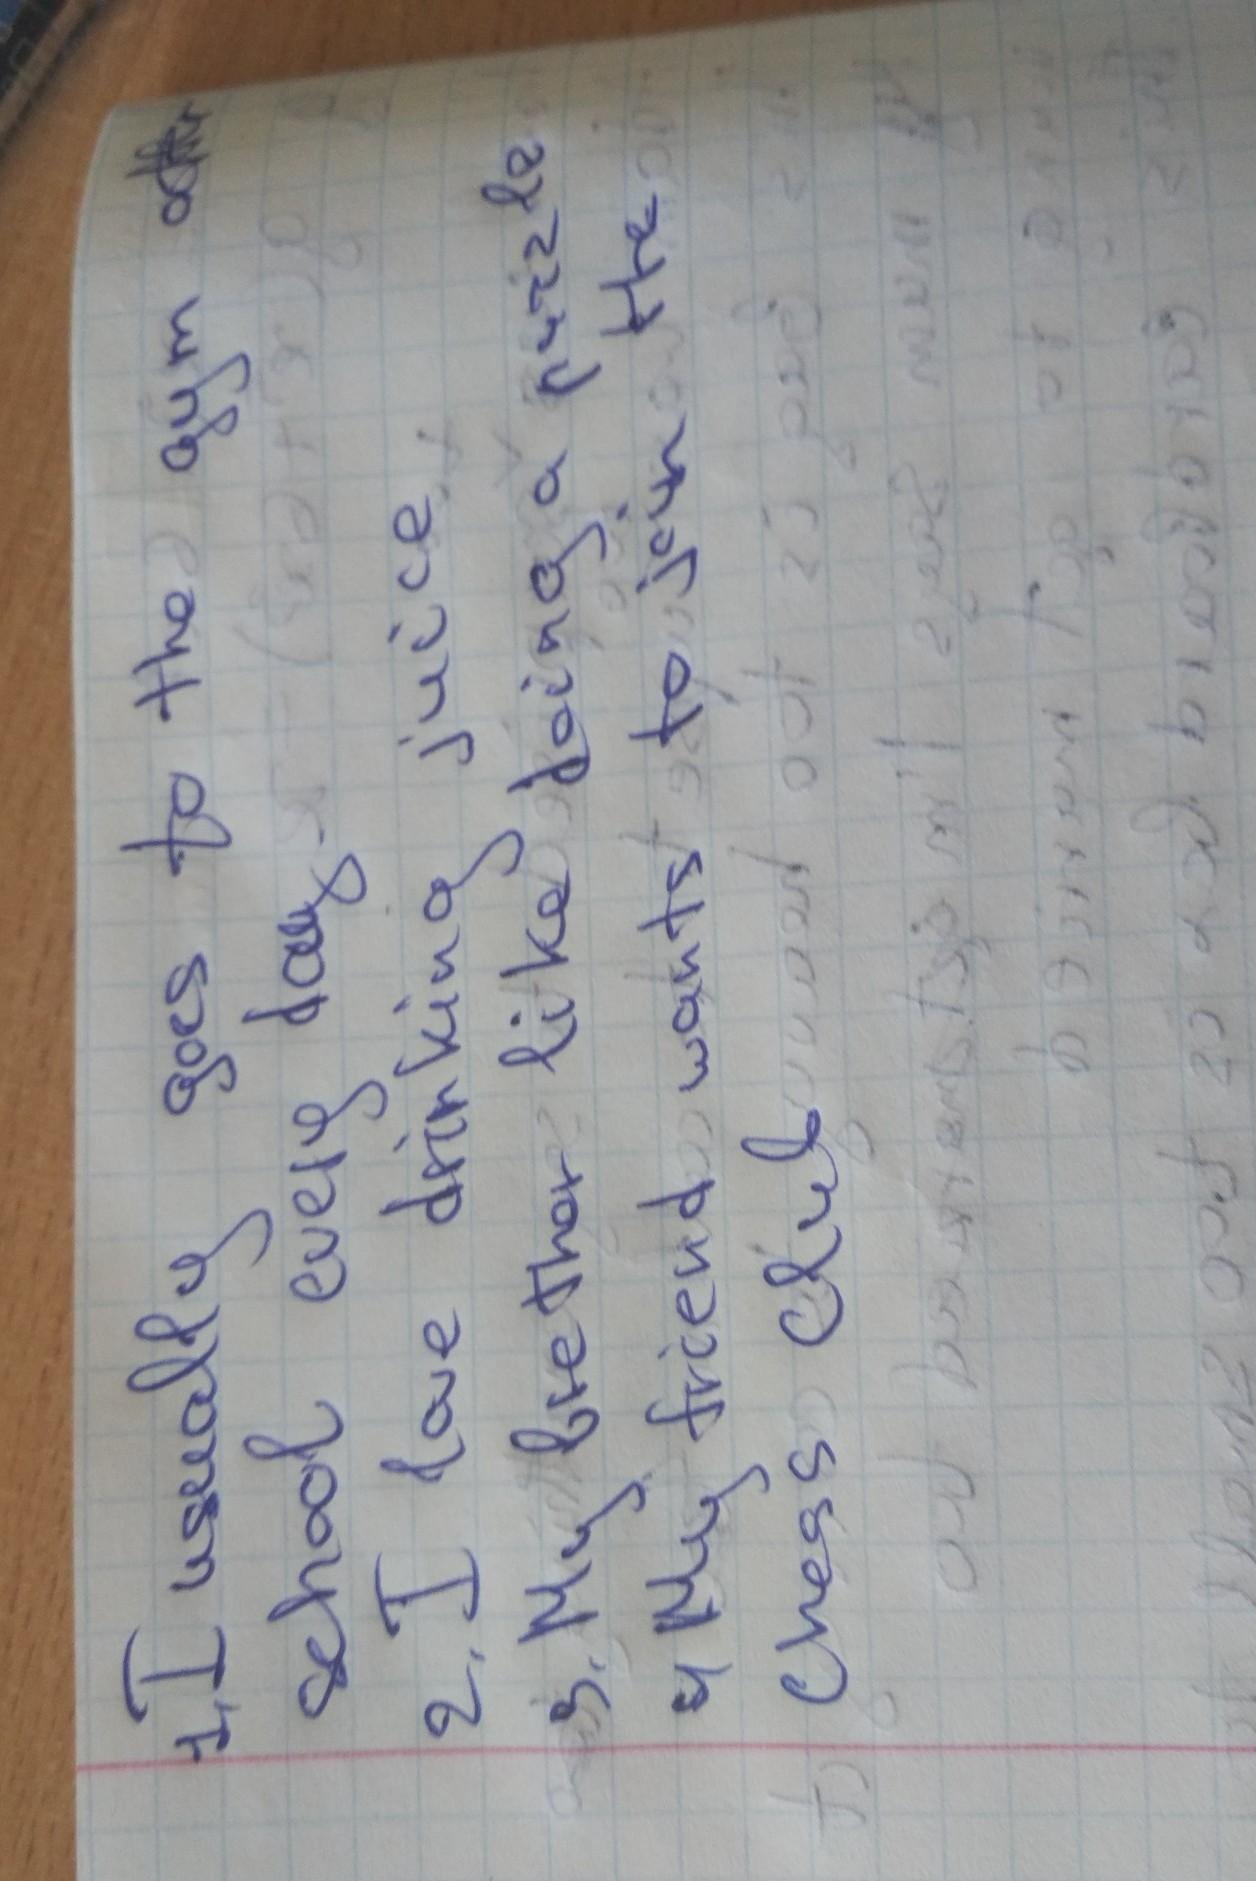 1. I usually goes to the gym after
school every day.
2. I love drinking juice
3. My brethor like doing a puzzle
4 My friend wants to join the
Chess Club